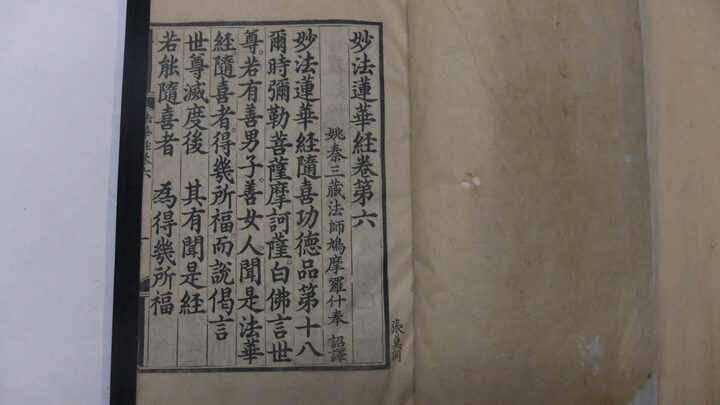 妙法蓮華經卷第六
姚秦三藏法師鳩摩羅什奉 詔譯
妙法蓮華經隨喜功德品第十八
爾時彌勒菩薩摩訶薩。白佛言世
尊。若有善男子善女人。聞是法華
經。隨喜者。得幾所福。而說偈言
世尊滅度後 其有聞是經
若能隨喜者 為得幾所福